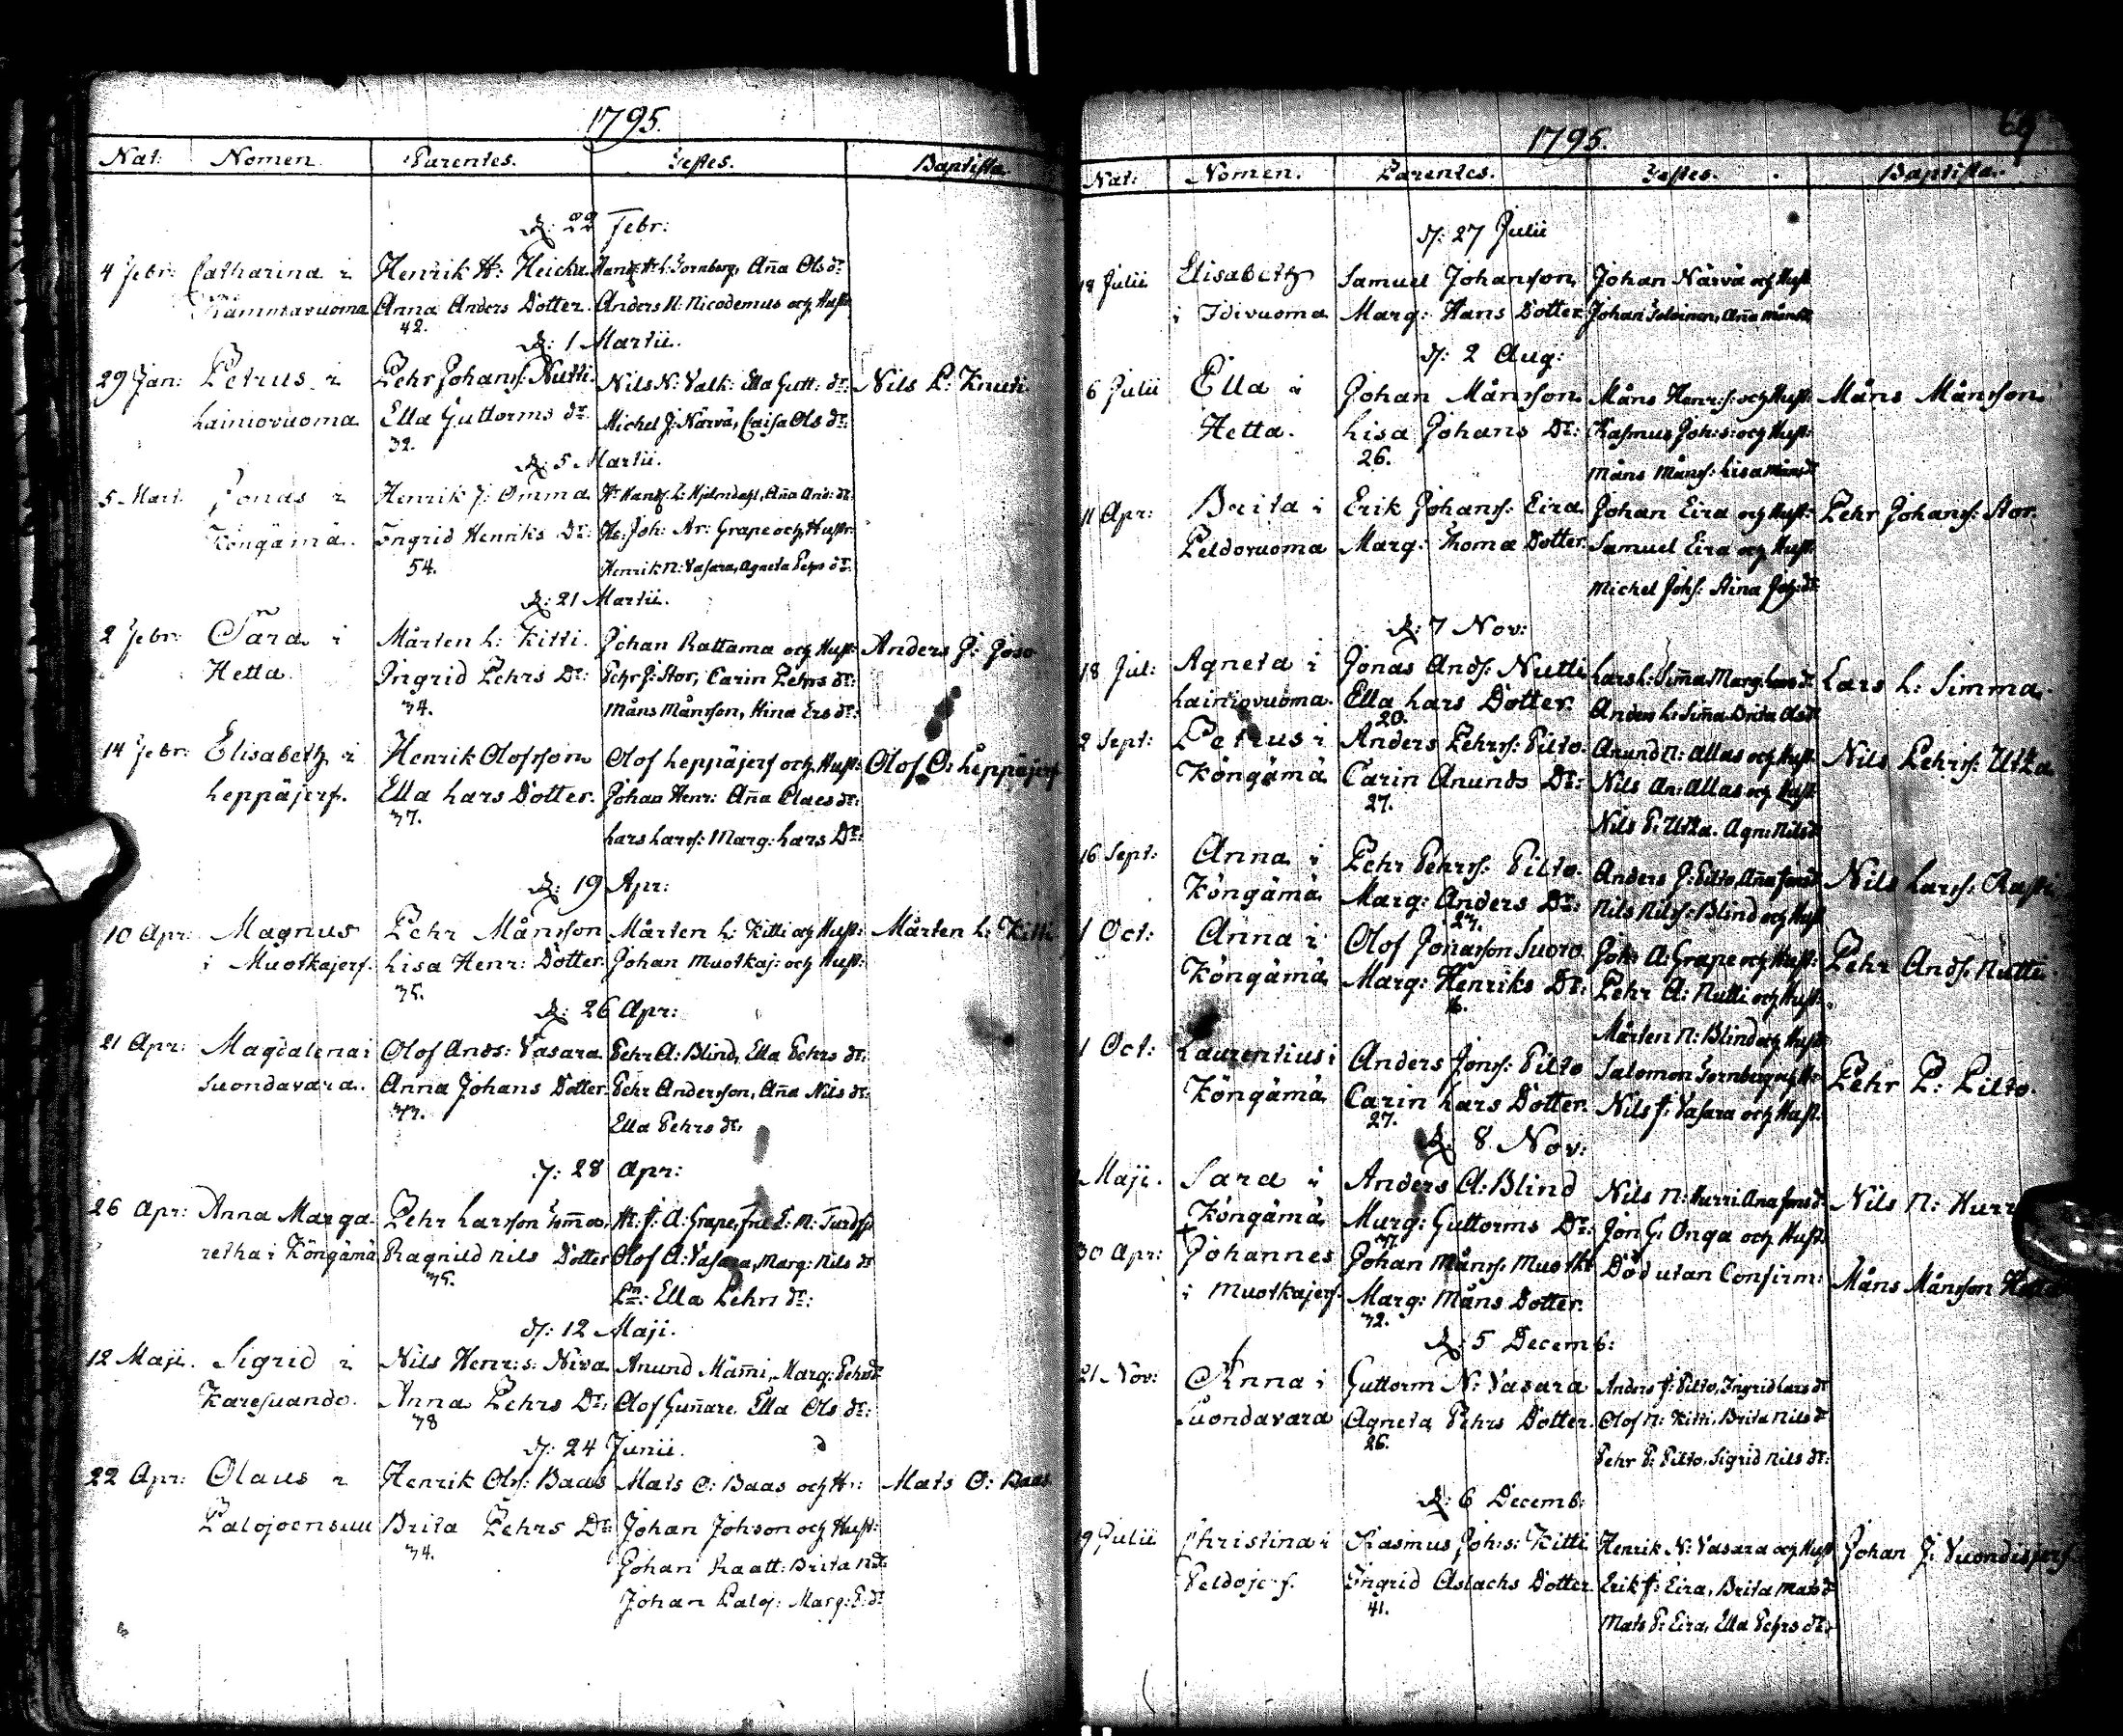 1795.
Nat: Nomen. Parentes. Testes. Baptista.
D: 22 Febr:
4 Febr: Catharina i Henrik H: Heicka Anna Ols dr:
Anna Anders Dotter. Anders N: Nicodemus och Hust
42.
D: 1 Martii.
29 Jan: Petrus i Pehr Johans: Nutti. Nils N: Valk: Ella Gutt: dr: Nils P: Knuti
Lainiovuoma Ella Guttorms dr: Michel J: Närvä, Caisa Ols dr:
32.
D: 5 Martii.
5 Mart: Jonas i Henrik J: Omma Hr Hans L: Hjelmdahl, Aña And: dr:
Köngämä. Ingrid Henriks Dr: Hr: Joh: Ar: Grape och Hustr:
54. Henrik N: Vasara, Agneta Pehrs dr:
D: 21 Martii.
2 Febr: Sara i Mårten L: Kitti. Johan Rattama och Hust: Anders J:
Hetta. Ingrid Pehrs Dr: Pehr J: Stor, Carin Pehrs dr:
34. Måns Månsson, Stina Ers dr:
14 Febr: Elisabeth i Henrik Olofsson Olof Leppäjerf och Hust: Olof O: Leppäjerf
Leppäjerf. Ella Lars Dotter. Johan Henr: Aña Claes dr:
37. Lars Larss: Marg: Lars Dr:
D: 19 Apr:
10 Apr: Magnus Pehr Månsson Mårten L: Kitti och Hust: Mårten L: Kitti
i Muotkajerf. Lisa Henr: Dotter. Johan Muotkaj: och Hust:
35.
D: 26 Apr:
21 Apr: Magdalena i Olof Ands: Vasara Pehr A: Blind, Ella Pehrs dr:
Suondavara. Anna Johans Dotter. Pehr Andersson, Aña Nils dr:
Ella Pehrs dr:
D: 28 Apr:
26 Apr: Anna Marga Pehr Larsson Hr. J: A: Grape,
retha i Köngämä Ragnild Nils Dotter Olof A: Vasara, Marg: Nils dr
35. Ella Pehrs dr:
D: 12 Maji.
12 Maji. Sigrid i Nils Henr: s: Niva Anund Mämi, Marg: Pehrs dr
Karesuando. Anna Pehrs Dr: Olof Guñare. Ella Ols dr:
38
D: 24 Junii.
22 Apr: Olaus i Henrik Ols: Baas Mats O: Baas och H: Mats O: Baas
Palojoensuu Brita Pehrs Dr: Johan Johson och Hust:
34. Johan Raatt: Brita N dr
Johan Paloj: Marg: P: dr
69
1795.
Nat: Nomen. Parentes. Testes. Baptista.
D: 27 Julii
Julii Elisabeth Samuel Johanson, Johan Närvä och Hust
i Idivuoma Marg: Hans Dotter.
D: 2 Aug:
6 Julii Ella i Johan Månsson. Måns Henr: s: och Hust: Måns Månsson.
Hetta. Lisa Johans Dr: Rasmus Joh: s: och Hust:
26. Måns Måns: Lisa Måns dr
11 Apr: Brita i Erik Johans: Eira Johan Eira och Hust: Pehr Johans: Stor.
Peldovuoma Marg: Thomæ Dotter. Samuel Eira och Hust:
Michel Johs: Stina Joh: dr
D: 7 Nov:
18 Jul: Agneta i Jonas Ands: Nutti Lars L: Siña, Marg: Lars dr Lars L: Simma.
Lainiovuoma. Ella Lars Dotter. Anders L: Siña
20.
2 Sept: Petrus i Anders Pehrs: Pilto. Anund N: Allas och Hust. Nils Pehrs: Utza
Köngämä Carin Anunds Dr: Nils An: Allas och Hust
27. Nils P: Utza. Agn: Nils d
16 Sept: Anna i Pehr Pehrs: Pilto. Anders J: Pilto, Aña Jons d Nils Larss: Rasti
Köngämä Marg: Anders Dr: Nils Nils: Blind och Hust
1 Oct: Anna i Olof Jonasson Suoro. Joh: A: Grape och Hust: Pehr Ands: Nutti.
Köngämä Marg: Henriks Dr: Pehr A: Nutti och Hust.
Mårten N: Blind och Hust:
1 Oct: Laurentius i Anders Jons: Pilto Salomon Pehr P: Pilto.
Köngämä Carin Lars Dotter. Nils J: Vasara och Hust.
27.
D: 8 Nov:
Maji. Sara i Anders A: Blind Nils N: Hurri Ana Jons d Nils N: Hurri
Köngämä Marg: Guttorms Dr: Jon G: Onga och Hust.
30 Apr: Johannes Johan Måns: Muotk Död utan Confirm: Måns Månsson
i Muotkajerf. Marg: Måns Dotter.
32.
D: 5 Decemb:
21 Nov: Anna i Guttorm N: Vasara Anders J: Pilto, Ingrid Lars dr
Suondavara Agneta Pehrs Dotter. Olof N: Kitti, Brita Nils d
26. Pehr P: Pilto, Sigrid Nils dr:
D: 6 Decemb:
9 Julii Christina i Rasmus Joh: s: Kitti Henrik N: Vasara och Hust Johan J: Vuondisjerf
Peldojerf. Ingrid Aslachs Dotter. Erik J: Eira, Brita Mats d
41. Mats P: Eira, Ella Pehrs dr: